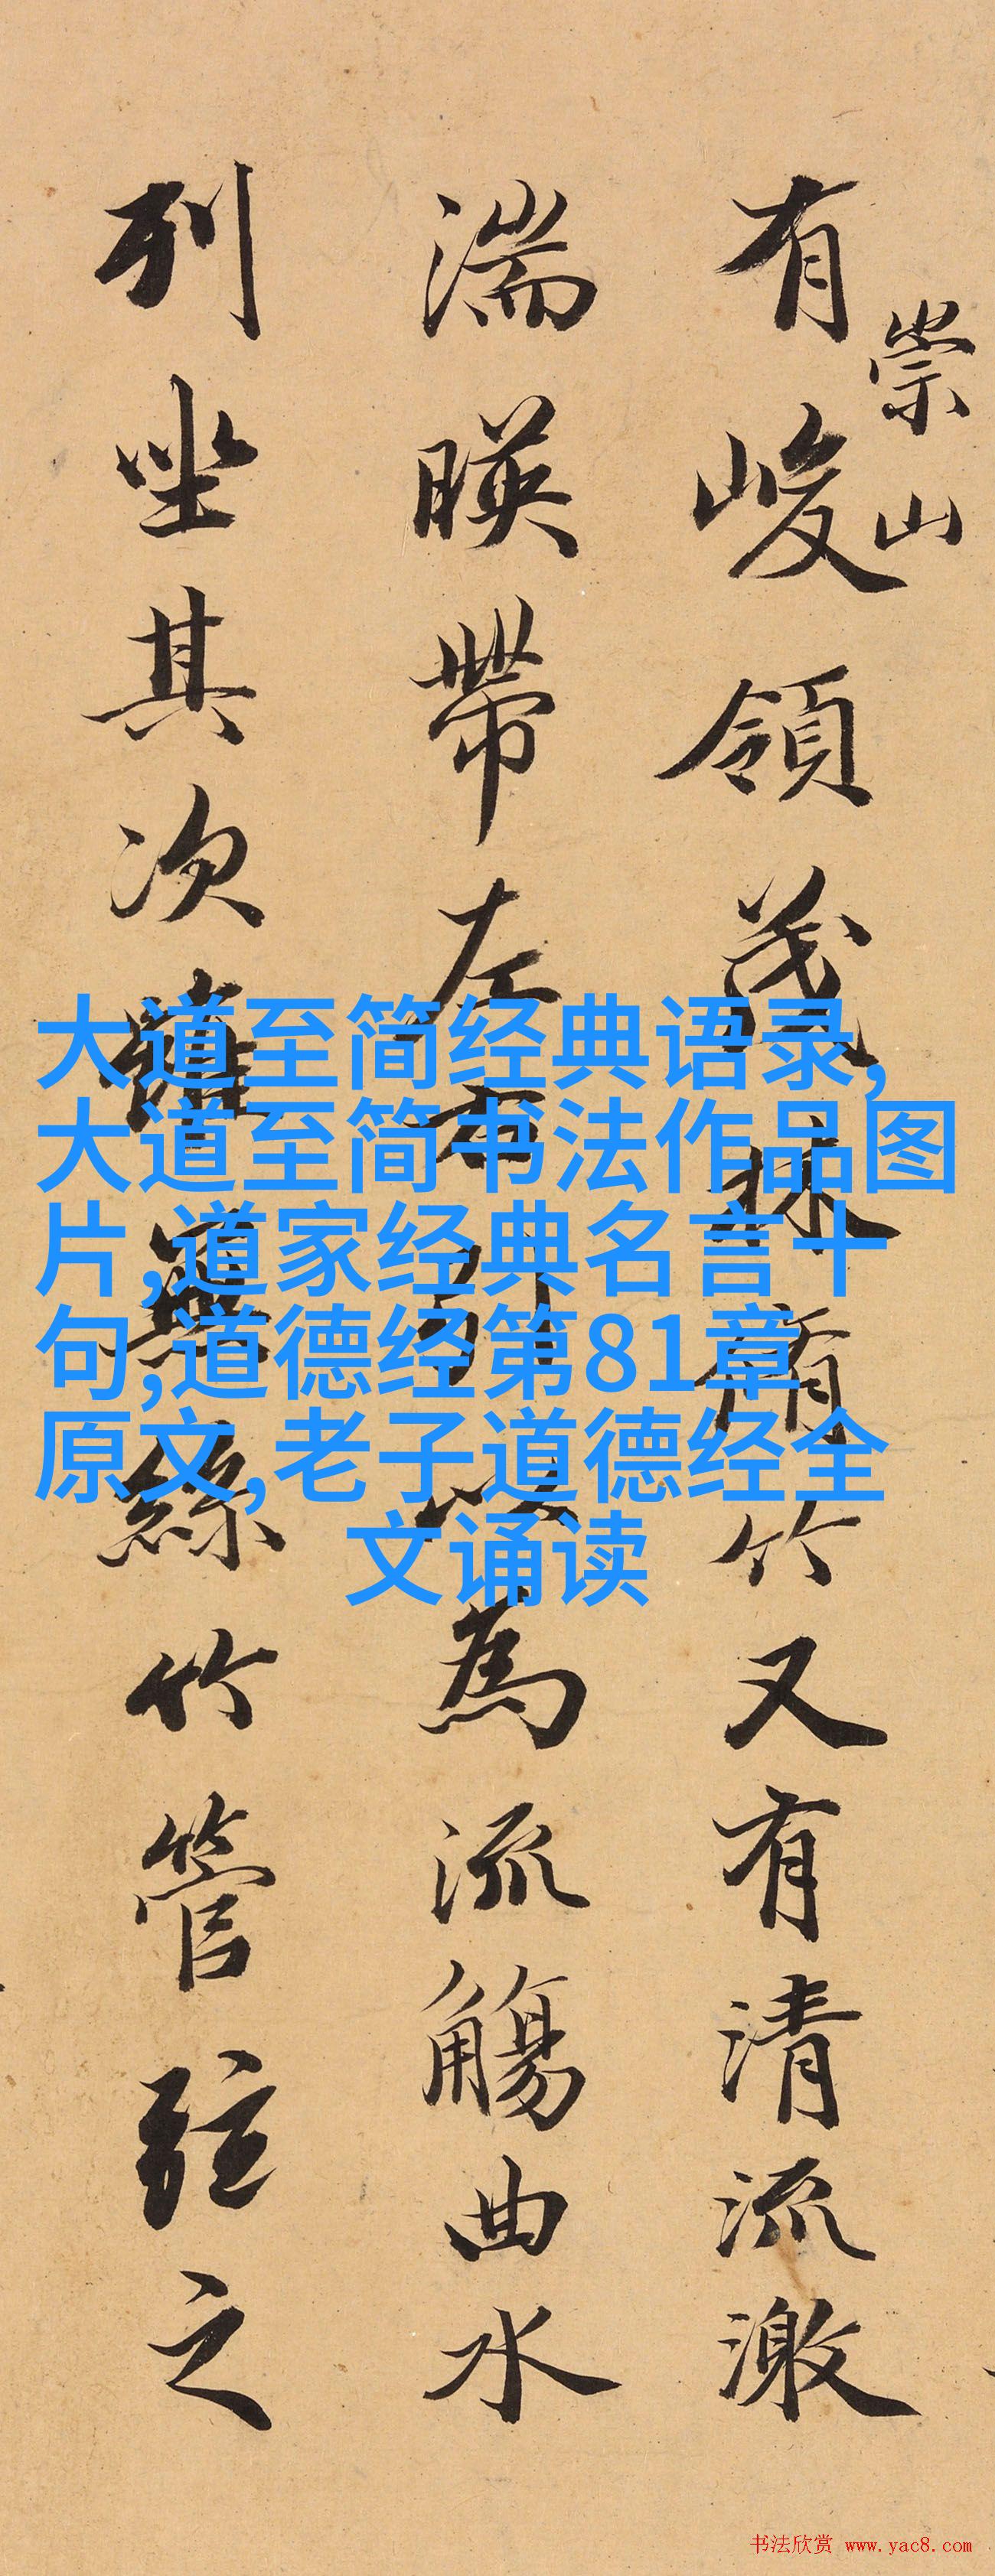 崇山
有峻領茂林脩竹又有清流激
湍暎帶左右引以為流觴曲水
列坐其次雖無絲竹管弦之
大道至简经典语录,
大道至简书法作品图
片,道家经典名言十
句,道德经第81章
原文,老子道德经全
文诵读
书法欣赏 www.yac8.com